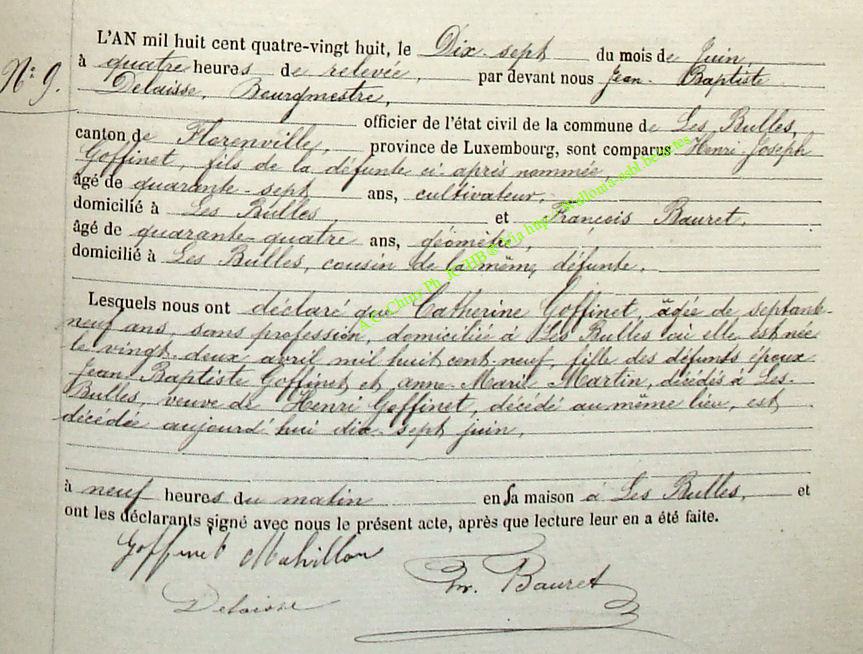 L'AN mil huit cent quatre-vingt huit, le Dix-sept du mois de Juin,
N° 9. à quatre heures de relevée, par devant nous Jean-Baptiste
Delaisse, Bourgmestre,
officier de l'état civil de la commune de Les Bulles,
canton de Florenville, province de Luxembourg, sont comparus Henri-Joseph
Goffinet, fils de la défunte ci-après nommée,
âgé de quarante-sept ans, cultivateur,
domicilié à Les Bulles, et François Bauret,
âgé de quarante-quatre ans, géomètre,
domicilié à Les Bulles, cousin de la même défunte.
Lesquels nous ont déclaré que Catherine Goffinet, âgée de septante-
neuf ans, sans profession, domiciliée à Les Bulles où elle est née
le vingt-deux avril mil huit cent-neuf, fille des défunts époux
Jean-Baptiste Goffinet et Anne-Marie Martin, décédés à Les-
Bulles, veuve de Henri Goffinet, décédé au même lieu, est
décédée aujourd'hui dix-sept juin,
à neuf heures du matin en sa maison à Les Bulles, et
ont les déclarants signé avec nous le présent acte, après que lecture leur en a été faite.
Goffinet Mahillon
Fr. Bauret
Delaisse